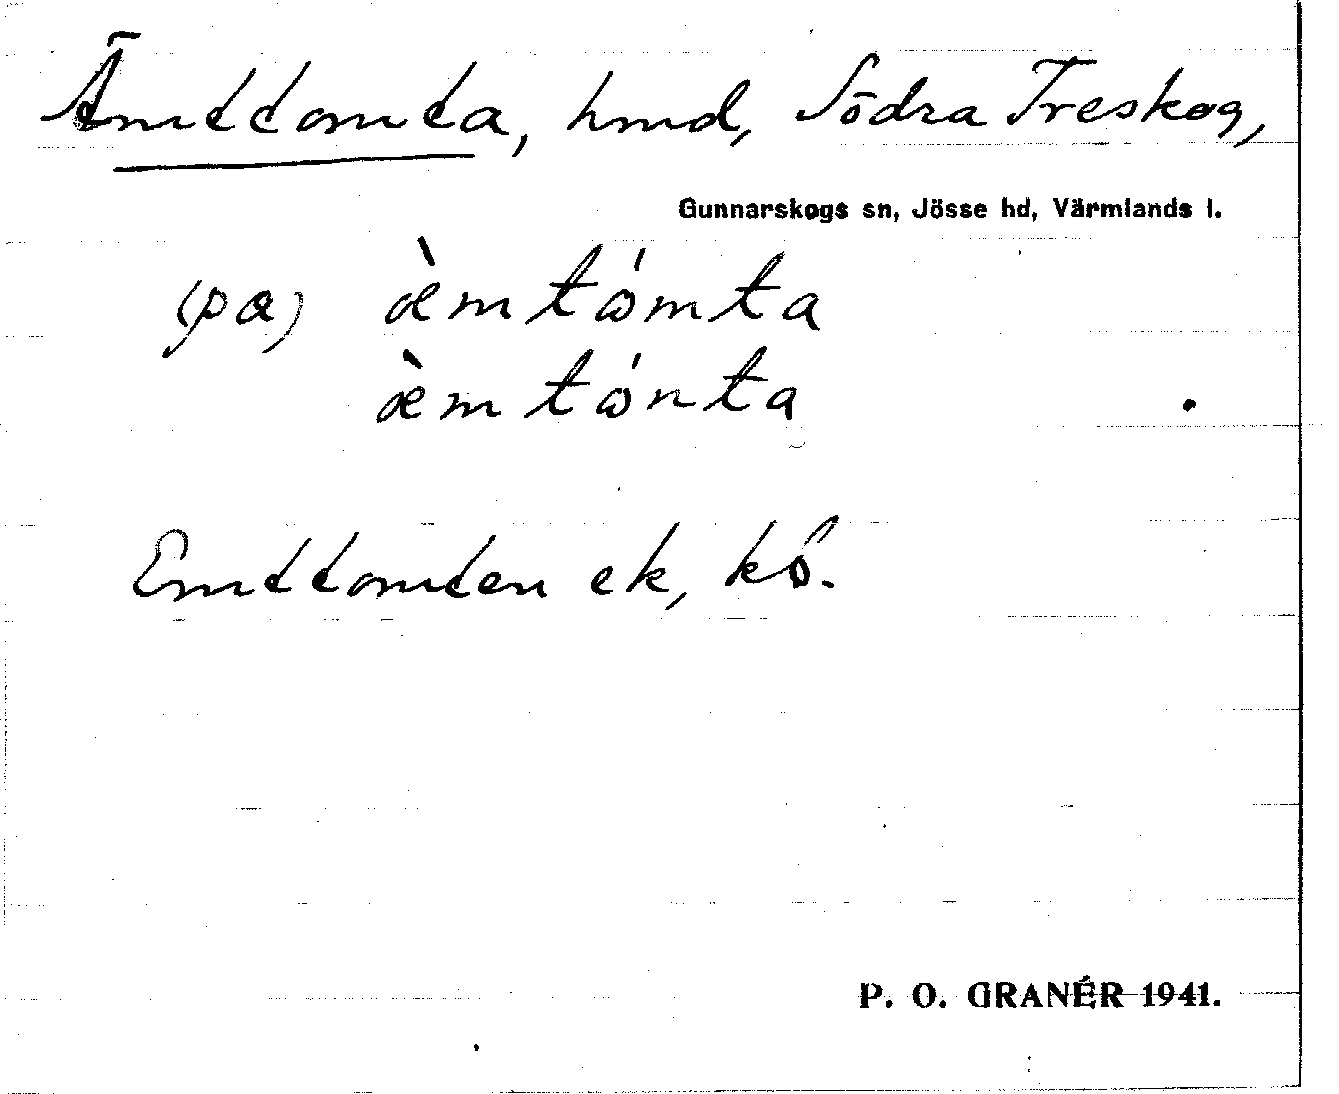 Ämttomta, hmd, Södra Treskog,
Gunnarskogs sn, Jösse hd, Värmlands l.
(pa) æ̀mtómta
æ̀mtónta
Emttomten ek, kb.
P. O. GRANÉR 1941.